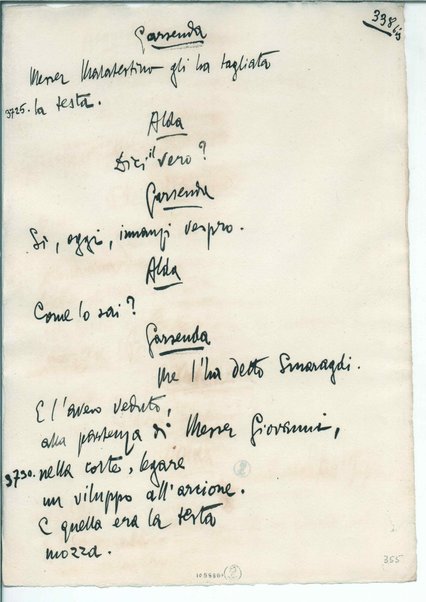 338 bis
Garsenda
Messer Malatestino gli ha tagliata
3725. la testa.
Alda
Dici il vero?
Garsenda
Sì, oggi, innanzi vespro.
Alda
Come lo sai?
Garsenda
Me l'ha detto Smaragdi.
E l'avea veduto,
alla partenza di Messer Giovanni,
3730. nella corte, legare
un viluppo all'arcione.
E quella era la testa
mozza.
355